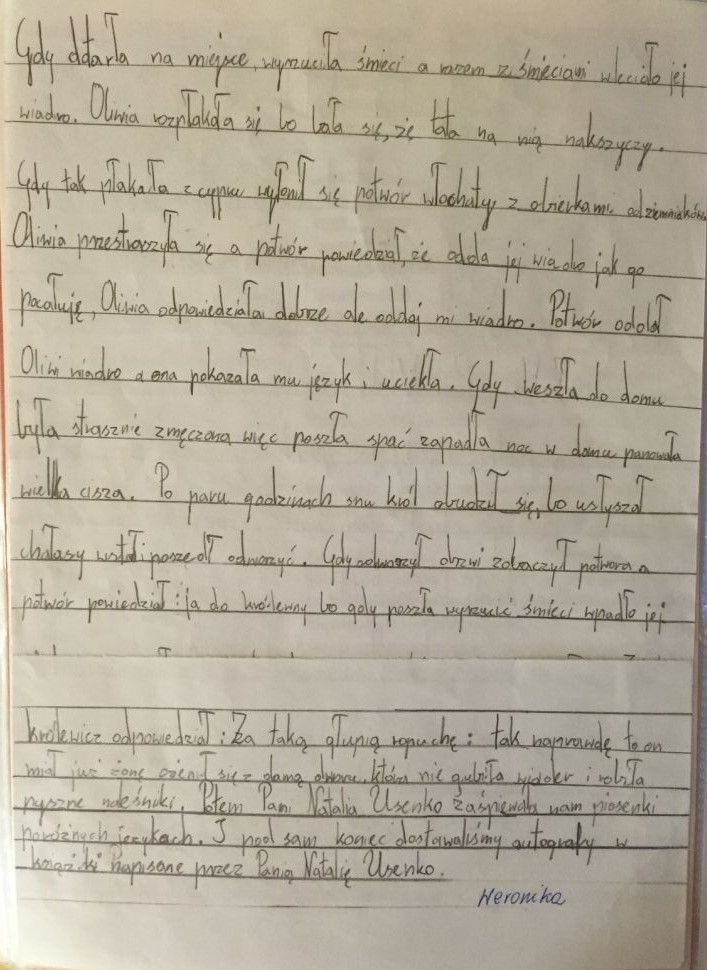 Gdy dtarła na miejsce, wyrzuciła śmieci a razem z śmieciami wleciało jej
wiadro. Oliwia rozpłakała się bo bała się, że tata na nią nakszyczy.
Gdy tak płakała z cypku wyłonił się potwór włochaty z obierkami odziemniaków.
Oliwia przestraszyła się a potwór powiedział, że odda jej wiadro jak go
pocałuję, Oliwia odpowiedziała dobrze ale oddaj mi wiadro. Potwór odddał
Oliwi wiadro a ona pokazała mu język i uciekła. Gdy weszła do domu
była strasznie zmęczona więc poszła spać zapadła noc w domu panowała
wielka cisza. Po paru godzinach snu król obudził się, bo usłyszał
chałasy wstał i poszedł odworzyć. Gdy odworzył drzwi zobaczył potwora a
potwór powiedział: ja do królewny bo gdy poszła wyrzucić śmieci wpadło jej
królewicz odpowiedział: Za taką głupią ropuchę: tak naprawdę to on
miał już żonę ożenił się z damą dworu, która nie gubiła wiader i robiła
pyszne naleśniki. Potem Pani Natalia Usenko zaśpiewała nam piosenki
poróżnych językach. I pod sam koniec dostawaliśmy autografy w
książki napisane przez Panią Natalię Usenko.
Weronika